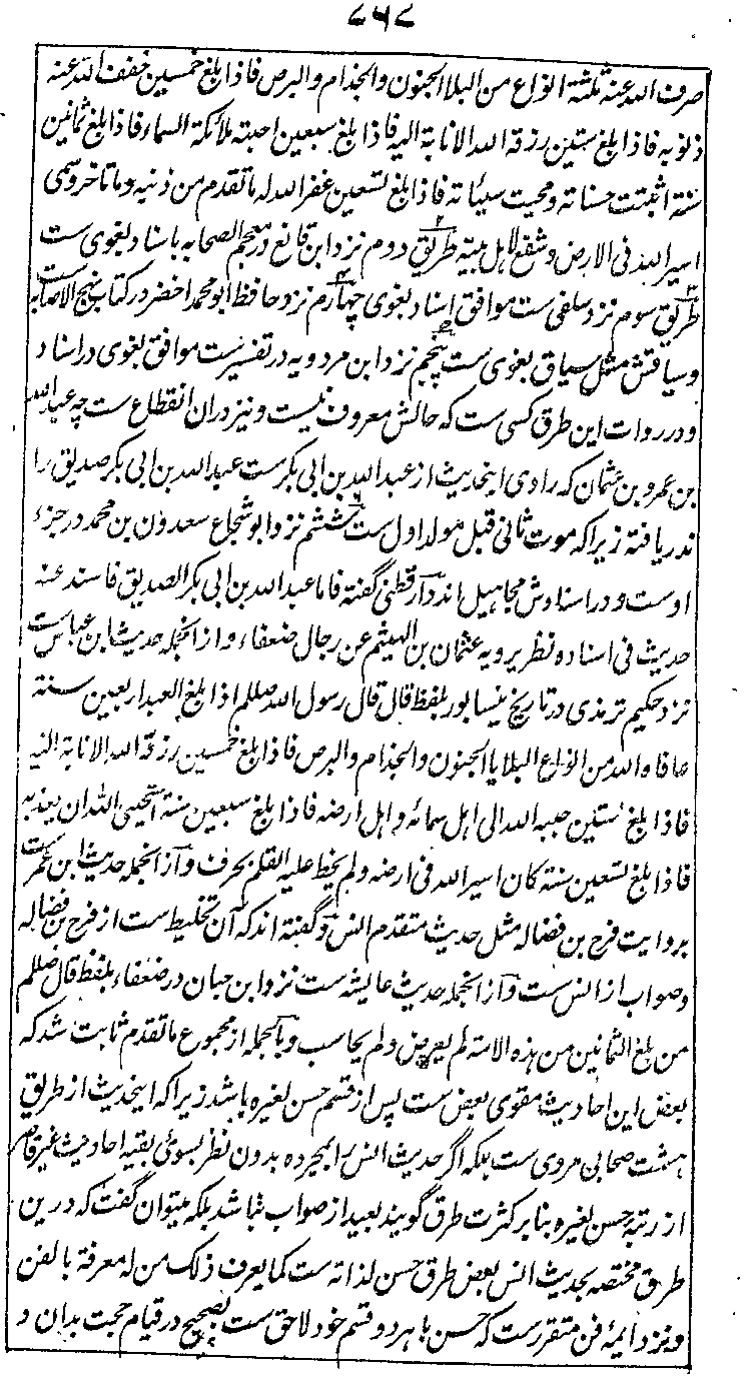 ۷۶۷
صرف الله عنه ثلثة انواع من البلا الجنون والجذام والبرص فاذا بلغ خمسين خفف الله عنه
ذنوبه فاذا بلغ ستين رزقه الله الانابة اليه فاذا بلغ سبعين احبته ملائكة السماء فاذا بلغ ثمانين
سنة اثبتت حسناته ومحيت سيئاته فاذا بلغ تسعين غفر الله له ما تقدم من ذنبه وما تاخر وسمى
اسير الله فى الارض وشفع لاهل بيته طريق دوم نزد ابن قانع در معجم الصحابه باسناد بغوى ست
طريق سوم نزد سلفى ست موافق اسناد بغوى چهارم نزد حافظ ابو محمد اخضر در كتاب نهج الاصابه ست
وسياقش مثل سياق بغوى ست پنجم نزد ابن مردويه در تفسير ست موافق بغوى در اسناد
و در روات اين طرق كسى ست كه حالش معروف نيست و نيز دران انقطاع ست چه عبد الله
بن عمرو بن عثمان كه راوى اينحديث از عبد الله بن ابى بكر ست عبد الله بن ابى بكر صديق را
ندريافته زيرا كه موت ثانى قبل مولد اول ست ششم نزد ابو شجاع سعدون بن محمد در جزء
اوست و در اسنادش مجاهيل اند دارقطنى گفته فاما عبد الله بن ابى بكر الصديق فاسند عنه
حديث فى اسناده نظر يرويه عثمان بن الهيثم عن رجال ضعفاء و ازانجمله حديث ابن عباس ست
نزد حكيم ترمذى در تاريخ نيسابور بلفظ قال قال رسول الله صللم اذا بلغ العبد اربعين سنة
عافاه الله من انواع البلايا الجنون والجذام والبرص فاذا بلغ خمسين رزقه الله الانابة اليه
فاذا بلغ ستين حببه الله الى اهل سمائه و اهل ارضه فاذا بلغ سبعين سنة استحيى الله ان يعذبه
فاذا بلغ تسعين سنة كان اسير الله فى ارضه ولم يخط عليه القلم بحرف و ازانجمله حديث ابن عمر ست
بروايت فرج بن فضاله مثل حديث متقدم انس و گفته اند كه آن تخليط ست از فرج بن فضاله
و صواب از انس ست و ازانجمله حديث عايشه ست نزد ابن حبان در ضعفاء بلفظ قال صللم
من بلغ الثمانين من هذه الامة لم يعرض ولم يحاسب و بالجمله از مجموع ما تقدم ثابت شد كه
بعض اين احاديث مقوى بعض ست پس از قسم حسن لغيره باشد زيرا كه اينحديث از طريق
هشت صحابى مروى ست بلكه اگر حديث انس را بمجرده بدون نظر بسوى بقيه احاديث غير قاصر
از رتبه حسن لغيره بنا بر كثرت طرق گويند بعيد از صواب نباشد بلكه ميتوان گفت كه درين
طرق مختصه بحديث انس بعض طرق حسن لذاته ست كما يعرف ذلك من له معرفة بالفن
و نزد ايمهٔ فن متقرر ست كه حسن باهر دو قسم خود لاحق ست بصحيح در قيام حجت بدان و